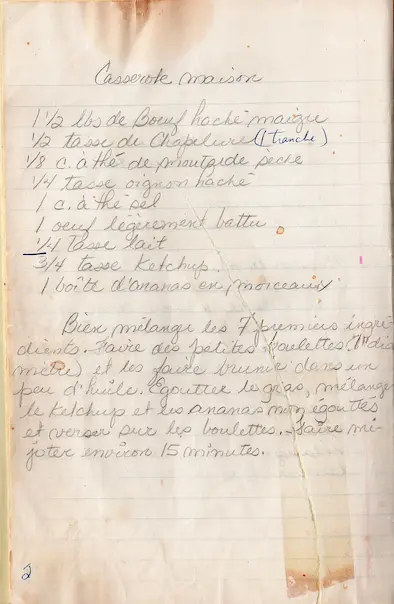 Casserole maison
1 1/2 lbs de Boeuf haché maigre
1/2 tasse de Chapelure (1 tranche)
1/8 c. à thé de moutarde sèche
1/4 tasse oignon haché
1 c. à thé sel
1 oeuf légèrement battu
1/4 tasse lait
3/4 tasse Ketchup.
1 boîte d'ananas en morceaux
Bien mélange les 7 premiers ingré-
dients. Faire des petites boulettes. (1" dia
mètre) et les faire brunir dans un
peu d'huile. Egoutter le gras, mélanger
le Ketchup et les ananas non égouttés
et verser sur les boulettes. Faire mi-
joter environ 15 minutes.
2